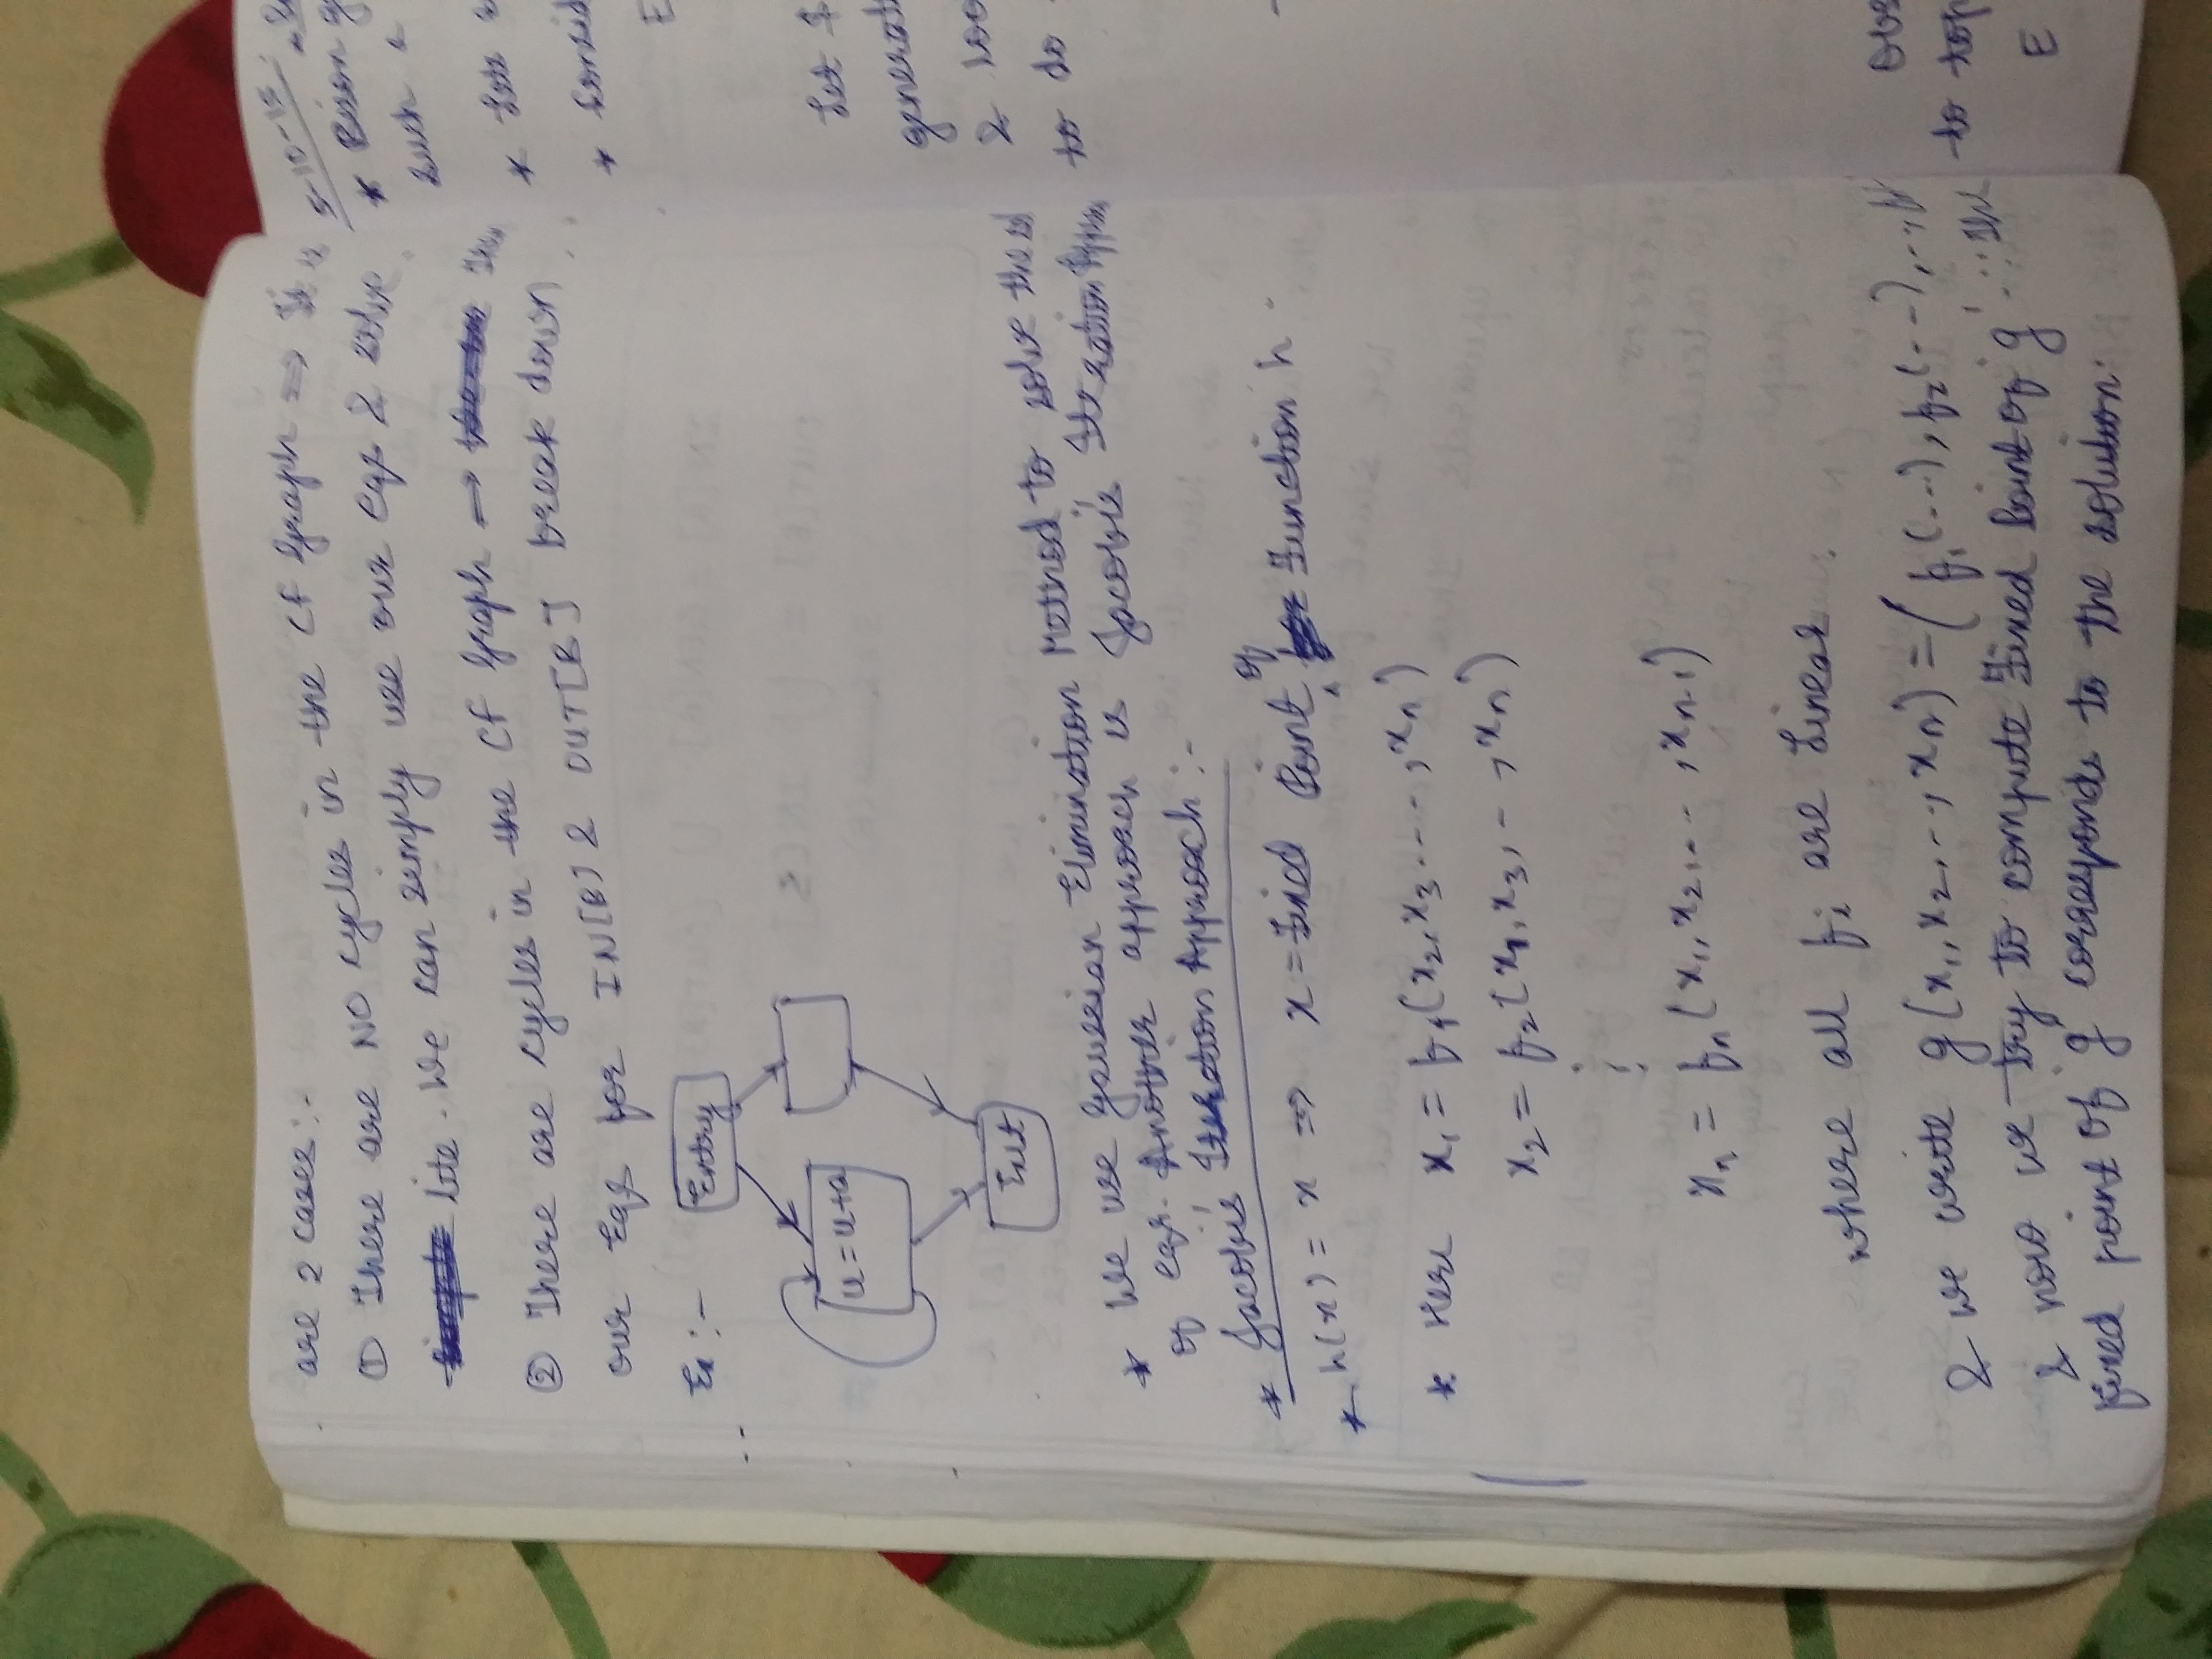 are 2 cases :-
① There are NO cycles in the CF Graph ⇒ It is
lite. We can simply use our eqs & solve
② There are cycles in the CF Graph ⇒ Then
our Eqs for IN[B] & OUT[B] break down
Ex :-
Entry
u = u+a
Exit
* We use Gaussian Elimination Method to solve the set
of eqs. Another approach is Jacobi's Iteration
* Jacobi's Iteration Approach :-
* h(x) = x ⇒ x = Fixed Point of Function h
* Here x₁ = f₁(x₂, x₃ ..., xₙ)
x₂ = f₂(x₁, x₃, -, xₙ)
⋮
xₙ = fₙ(x₁, x₂, --, xₙ₋₁)
where all fᵢ are linear
& we write g(x₁, x₂, --, xₙ) = (f₁(--), f₂(--), --,
& now we try to compute Fixed Point of g
Fixed point of g corresponds to the solution.
9-10-15
* Given
such
* Sets
Let
generat
& loo
to do
to top
E